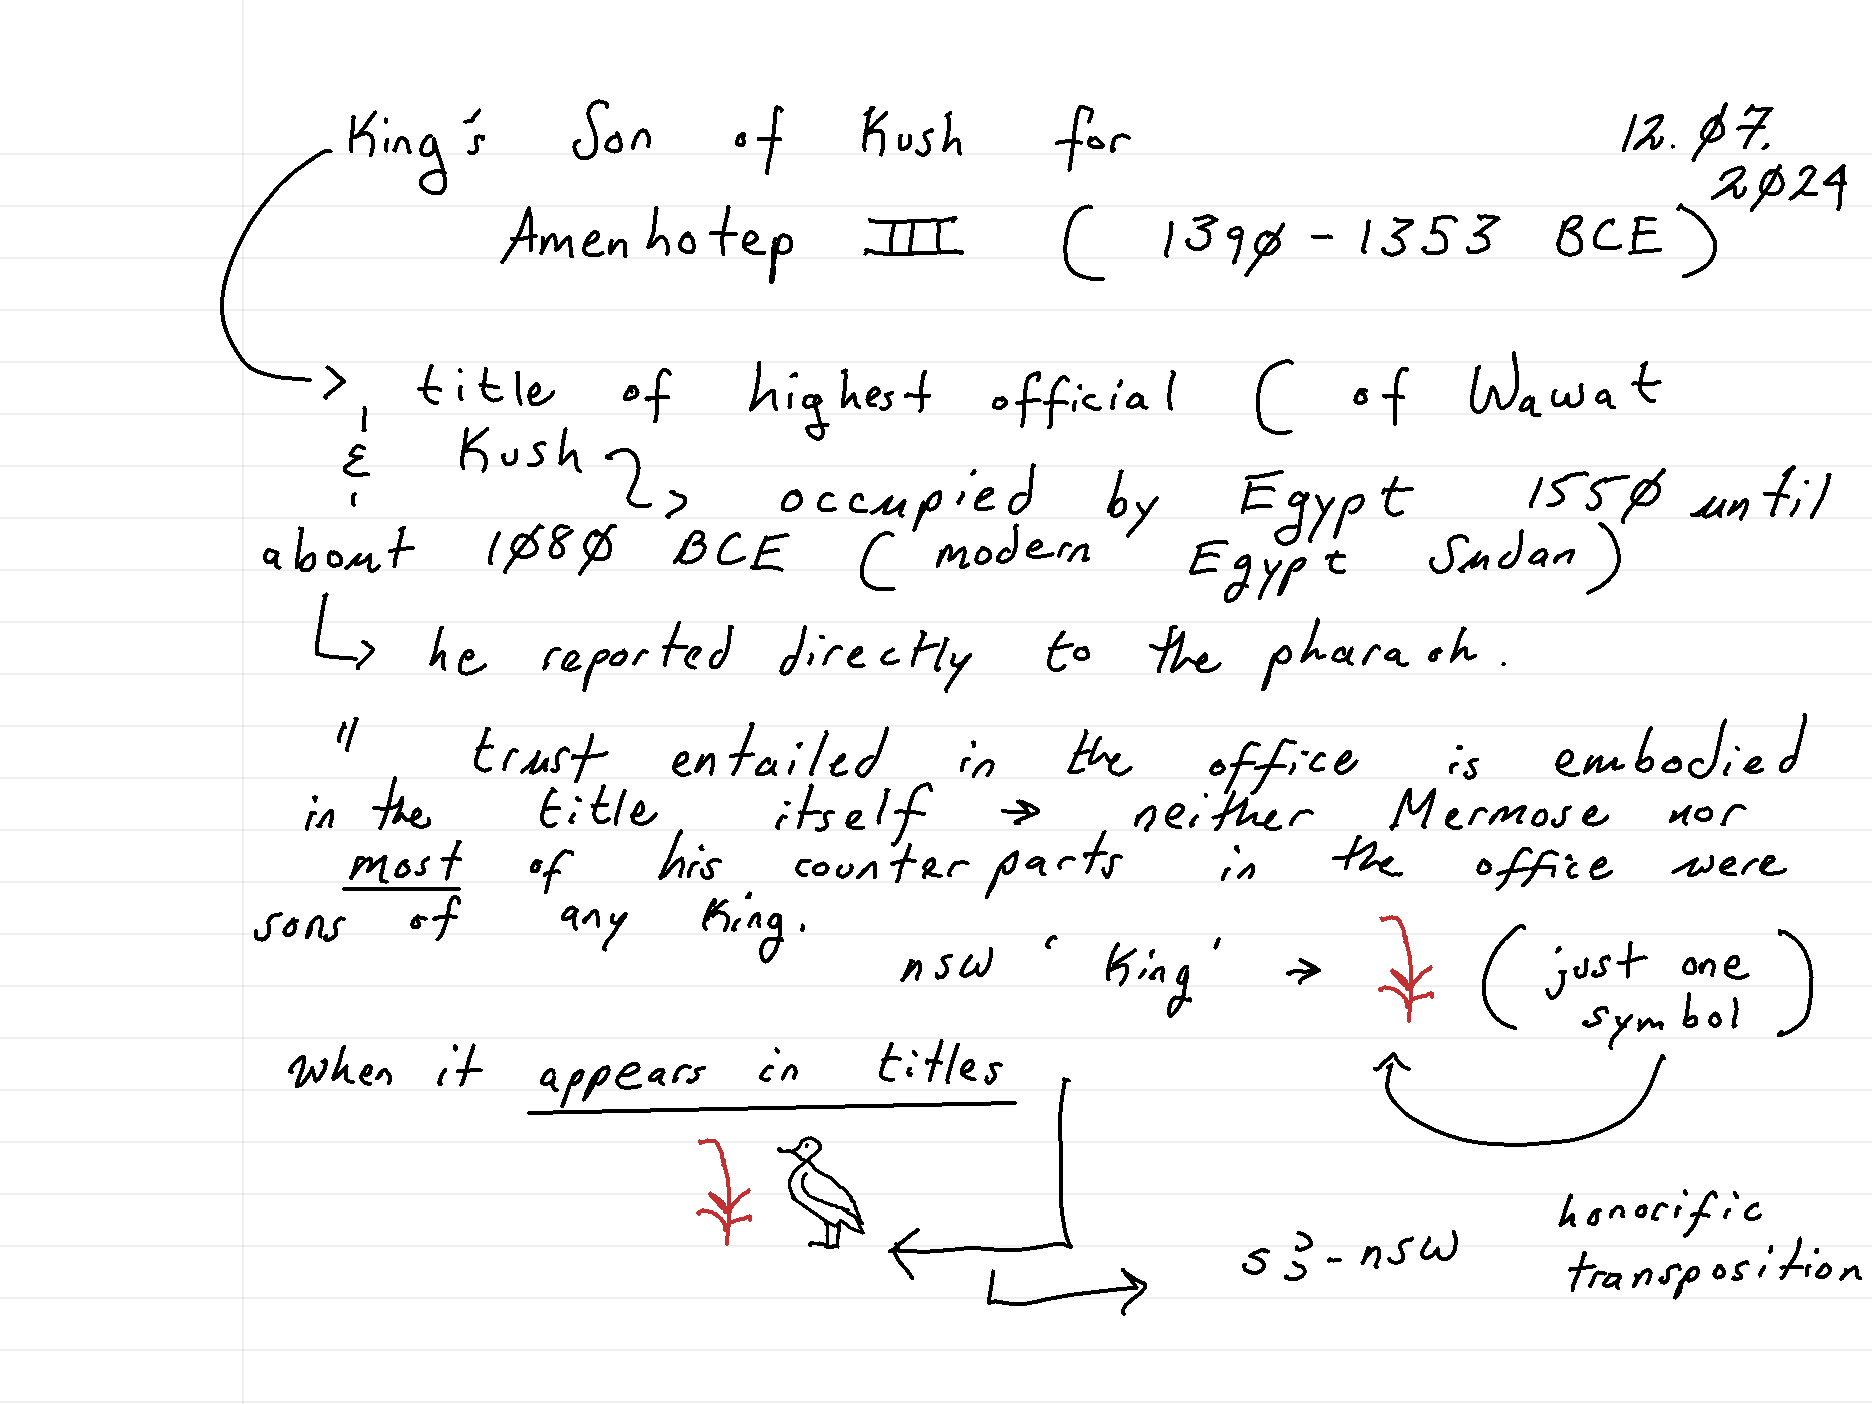 King's Son of Kush for
12.07.
2024
Amenhotep III (1390-1353 BCE)
→ title of highest official ( of Wawat
& Kush → occupied by Egypt 1550 until
about 1080 BCE (modern Egypt Sudan)
↳ he reported directly to the pharaoh.
" trust entailed in the office is embodied
in the title itself → neither Mermose nor
most of his counterparts in the office were
sons of any King.
nsw 'King' → 𓇓 (just one
symbol)
when it appears in titles
𓇓 𓅭
sꜣ-nsw
honorific
transposition